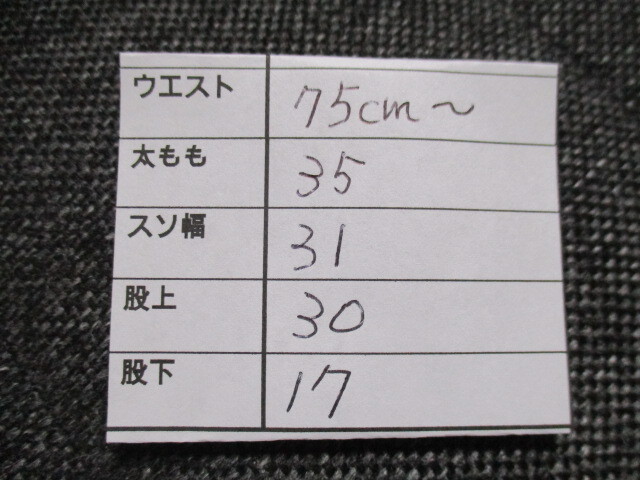 ウエスト 75cm～
太もも 35
スソ幅 31
股上 30
股下 17